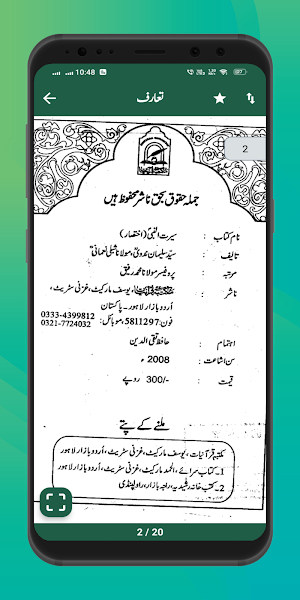 10:48
تعارف
2
جملہ حقوق بحق ناشر محفوظ ہیں
نام کتاب : سیرت النبیؐ (اختصار)
تالیف : سید سلیمان ندویؒ، مولانا شبلی نعمانیؒ
مرتبہ : پروفیسر مولانا محمد رفیق
ناشر : یوسف مارکیٹ، غزنی سٹریٹ،
اُردو بازار لاہور ۔ پاکستان
فون 5811297، موبائل: 0333-4399812
0321-7724032
اہتمام : حافظ تقی الدین
سن اشاعت : 2008ء
قیمت : 300/- روپے
ملنے کے پتے
مکتبہ قرآنیات، یوسف مارکیٹ، غزنی سٹریٹ، اُردو بازار لاہور
1۔ کتاب سرائے، الحمد مارکیٹ، غزنی سٹریٹ، اُردو بازار لاہور
2۔ کتب خانہ رشیدیہ، راجہ بازار، راولپنڈی
2 / 20